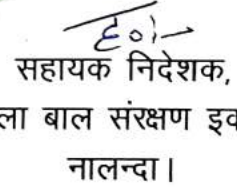 ह०/-
सहायक निदेशक,
ला बाल संरक्षण इव
नालन्दा।